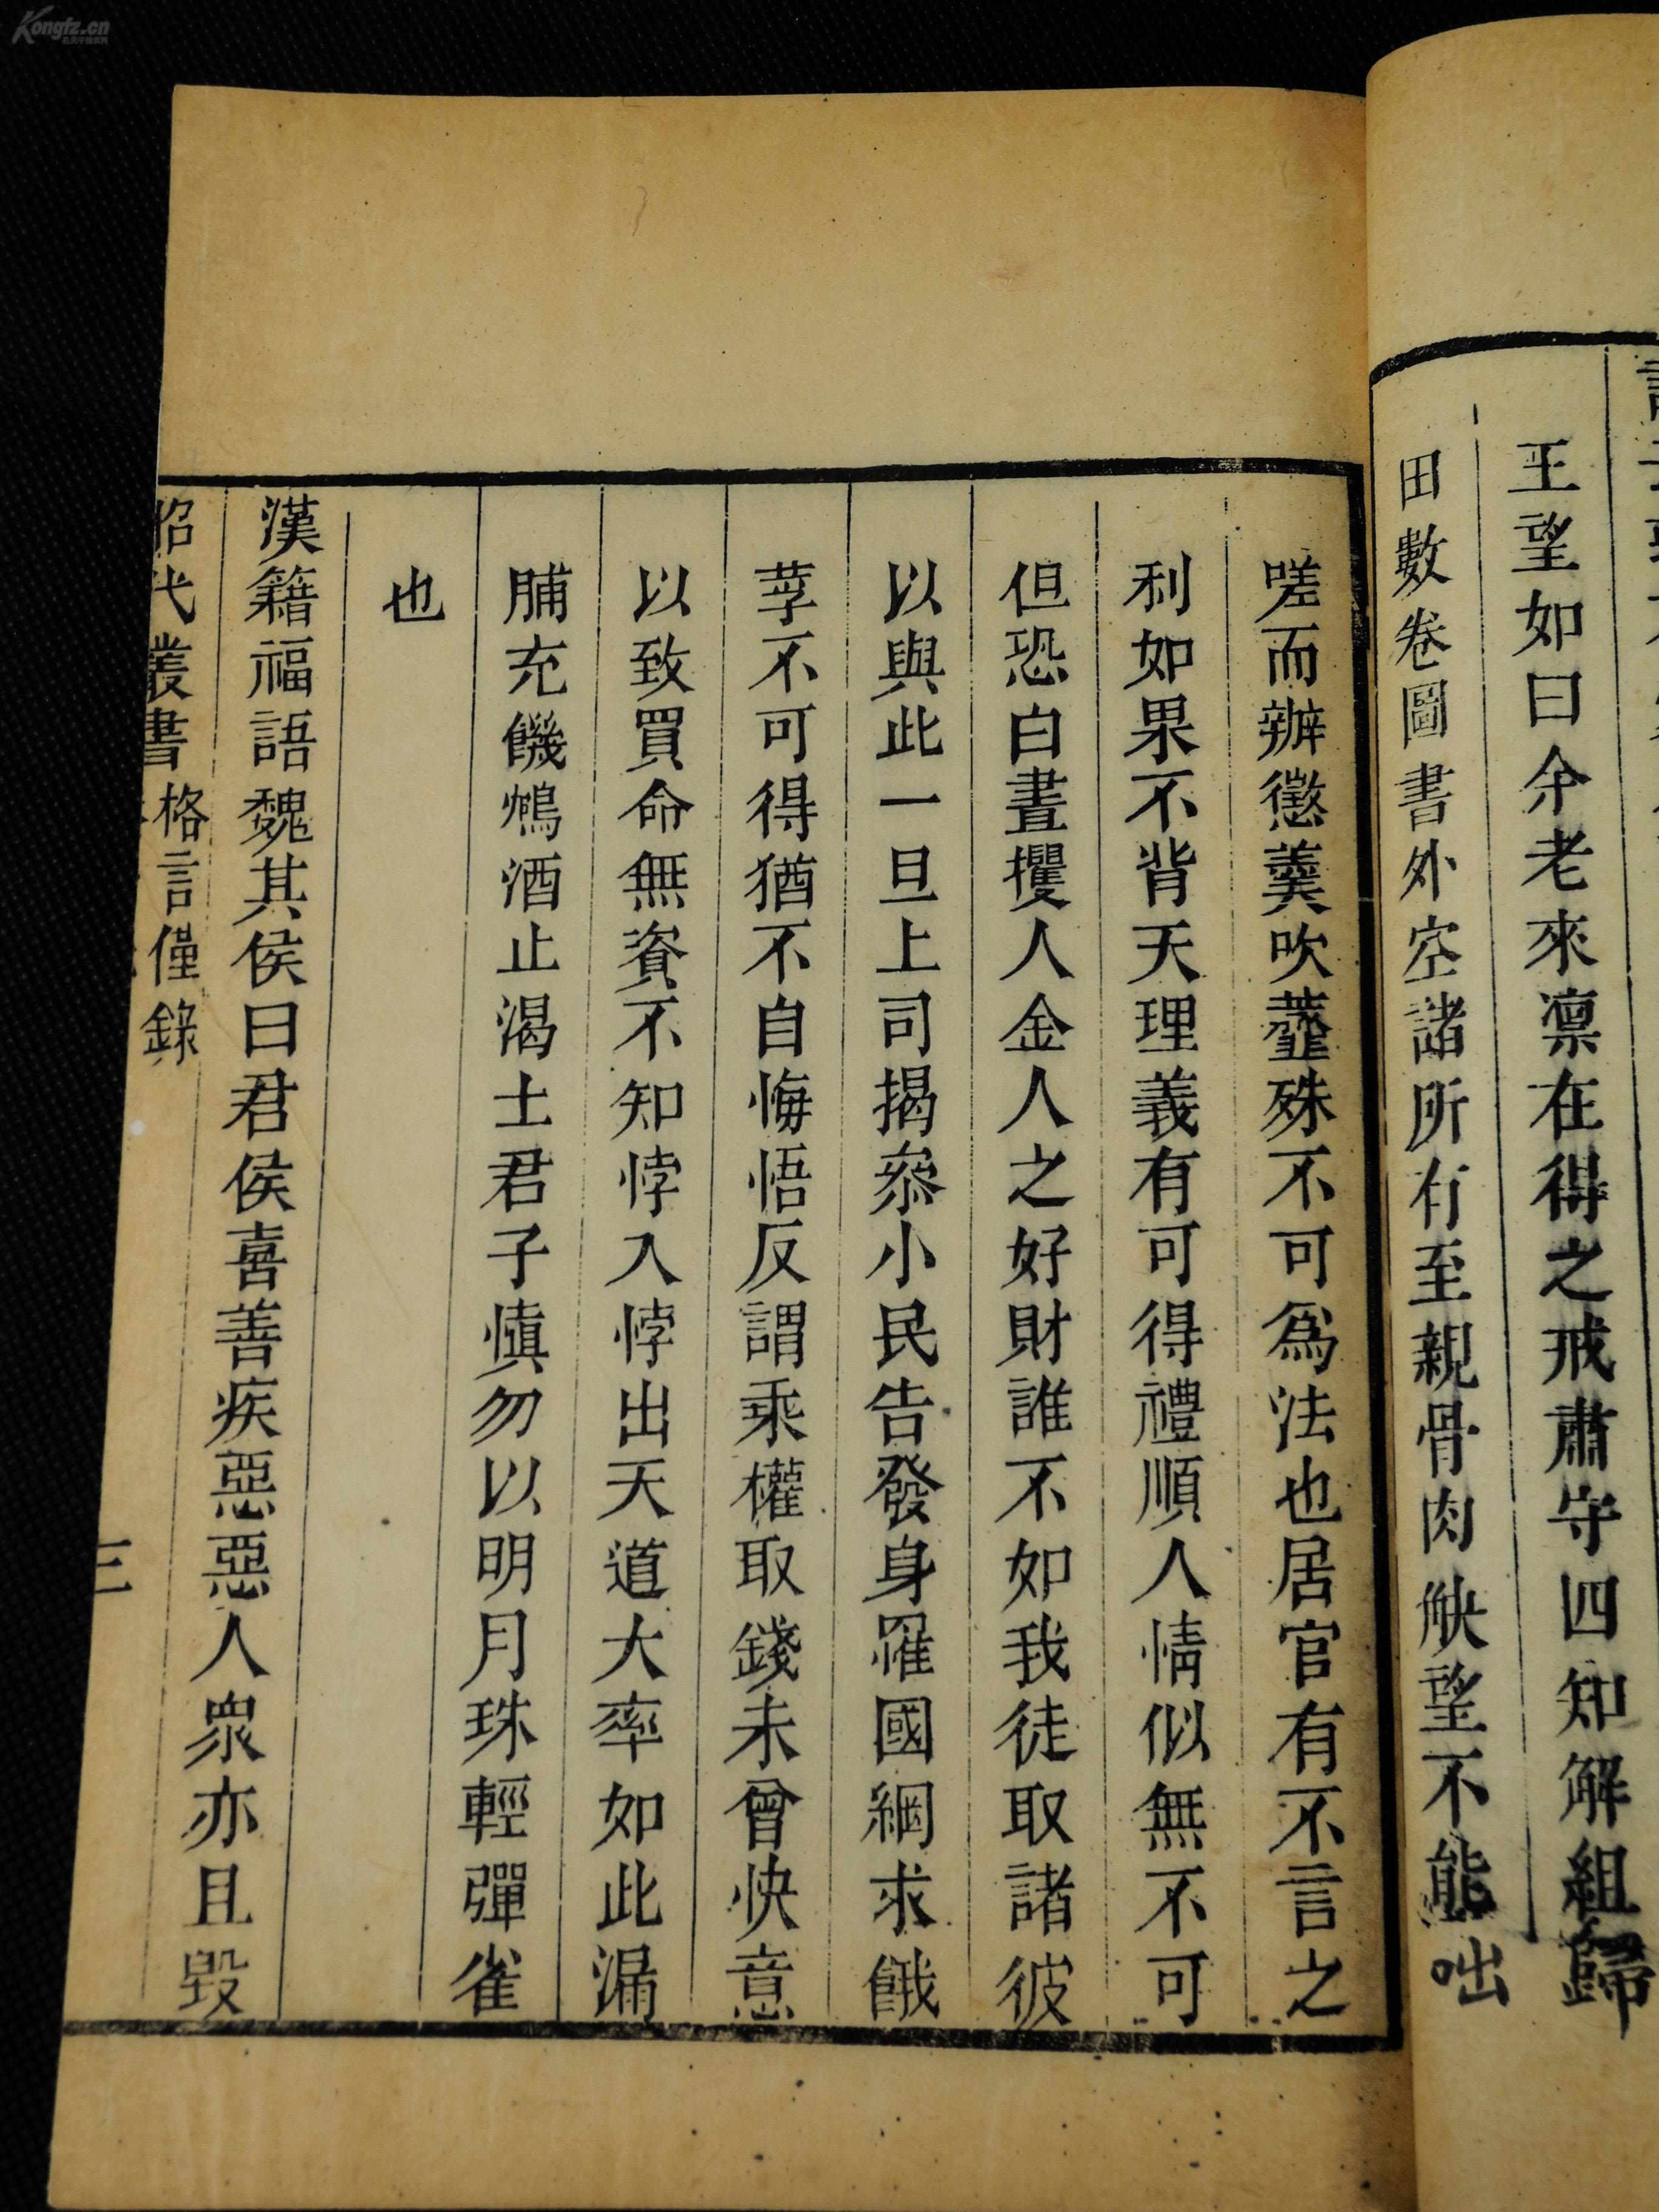 王望如曰余老來凛在得之戒肅守四知解組歸
田數卷圖書外空諸所有至親骨肉觖望不能咄
嗟而辦懲羹吹虀殊不可爲法也居官有不言之
利如果不背天理義有可得禮順人情似無不可
但恐白晝攫人金人之好財誰不如我徒取諸彼
以與此一旦上司揭叅小民告發身罹國綱求餓
莩不可得猶不自悔悟反謂乘權取錢未曾快意
以致買命無資不知悖入悖出天道大率如此漏
脯充饑鴆酒止渴士君子慎勿以明月珠輕彈雀
也
漢籍福語魏其侯曰君侯喜善疾惡惡人衆亦且毀
昭代叢書 格言僅錄
三
Kongfz.cn